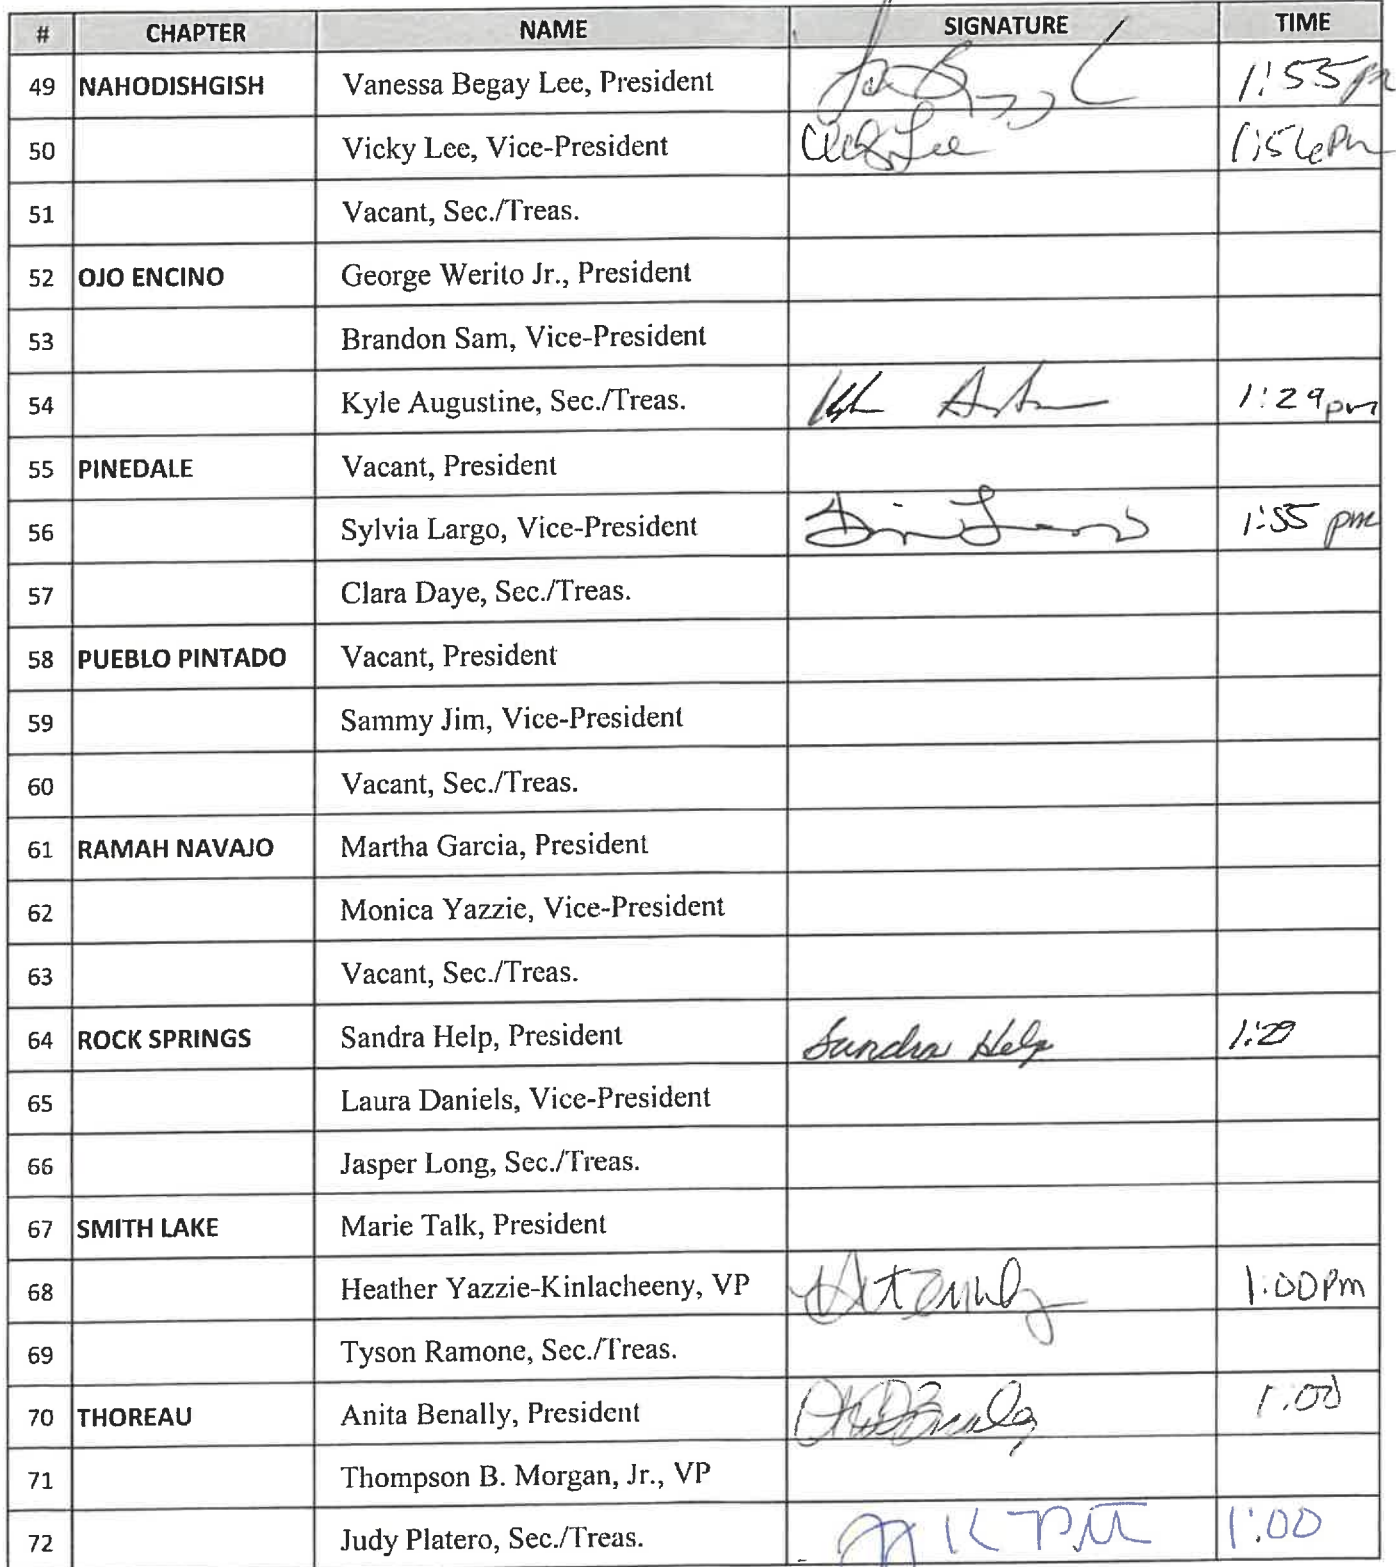 # CHAPTER NAME SIGNATURE TIME
49 NAHODISHGISH Vanessa Begay Lee, President 1:55 pm
50 Vicky Lee, Vice-President Lee 1:56 Pm
51 Vacant, Sec./Treas.
52 OJO ENCINO George Werito Jr., President
53 Brandon Sam, Vice-President
54 Kyle Augustine, Sec./Treas. 1:29 pm
55 PINEDALE Vacant, President
56 Sylvia Largo, Vice-President 1:55 pm
57 Clara Daye, Sec./Treas.
58 PUEBLO PINTADO Vacant, President
59 Sammy Jim, Vice-President
60 Vacant, Sec./Treas.
61 RAMAH NAVAJO Martha Garcia, President
62 Monica Yazzie, Vice-President
63 Vacant, Sec./Treas.
64 ROCK SPRINGS Sandra Help, President Sandra Help 1:29
65 Laura Daniels, Vice-President
66 Jasper Long, Sec./Treas.
67 SMITH LAKE Marie Talk, President
68 Heather Yazzie-Kinlacheeny, VP 1:00 Pm
69 Tyson Ramone, Sec./Treas.
70 THOREAU Anita Benally, President 1:00
71 Thompson B. Morgan, Jr., VP
72 Judy Platero, Sec./Treas. 1:00